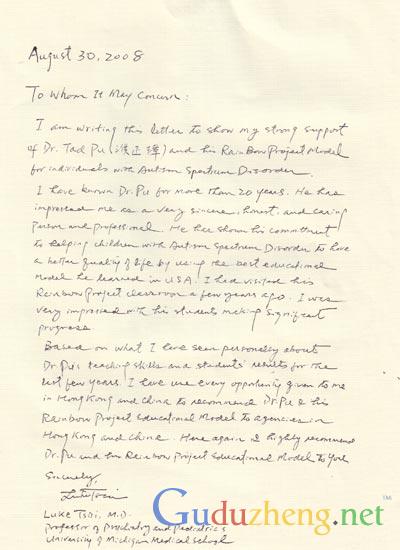 August 30, 2008
To Whom It May Concern:
I am writing this letter to show my strong support
of Dr. Tad Pu (濮正瑋) and his Rainbow Project Model
for individuals with Autism Spectrum Disorder.
I have known Dr. Pu for more than 20 years. He has
impressed me as a very sincere, honest, and caring
Person and professional. He has shown his commitment
to helping children with Autism Spectrum Disorder to have
a better quality of life by using the best educational
model he learned in USA. I had visited his
Rainbow Project classroom a few years ago. I was
very impressed with his students making significant
progress
Based on what I have seen personally about
Dr Pu's teaching skills and students' results for the
last few years. I have use every opportunity given to me
in Hong Kong and China to recommend Dr. Pu & his
Rainbow Project Educational Model to agencies in
Hong Kong and China. Here again I highly recommend
Dr. Pu and his Rainbow Project Educational Model to you
Sincerely,
Luke Tsai, M.D.
Professor of Psychiatry and Pediatrics
University of Michigan Medical School
TM
Guduzheng.net